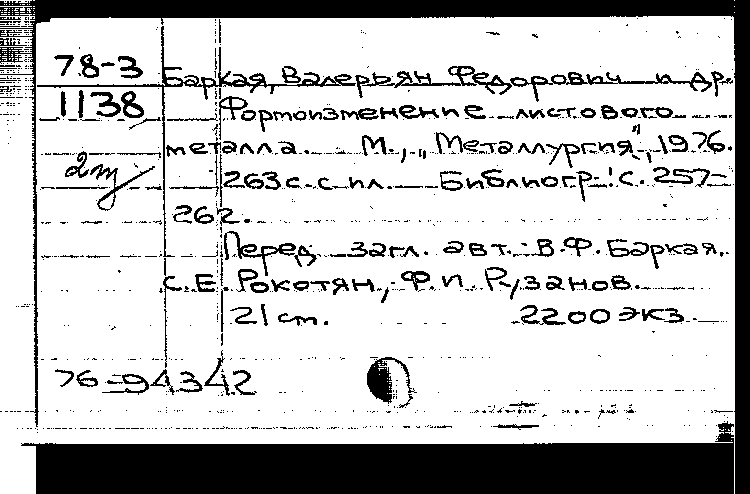 78-3 Баркая, Валерьян Федорович и др.
1138 Формоизменение листового
металла. М., "Металлургия", 1976.
263 с. с ил. Библиогр.: с. 257-
262.
Перед загл. авт.: В.Ф. Баркая,
С.Е. Рокотян, Ф.И. Рузанов.
21 ст. 2200 экз.
76-94342